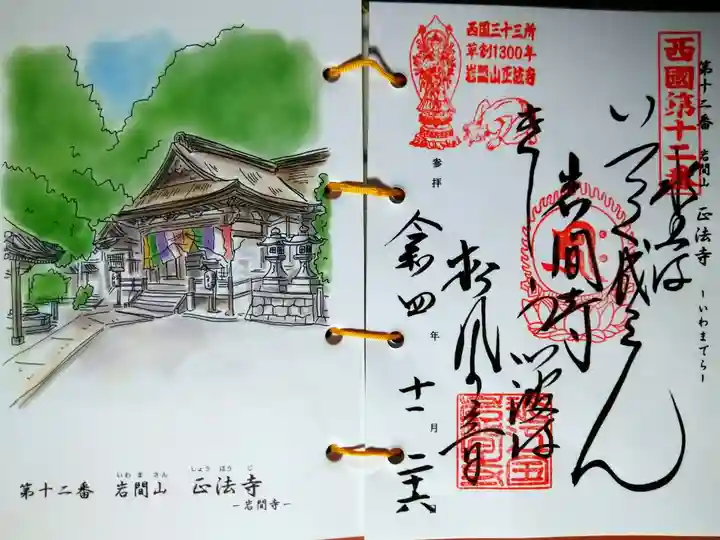 いわ ま さん しょう ほう じ
第十二番 岩間山 正法寺
-岩間寺-
第十二番 岩間山 正法寺 -いわまてら-
西國第十二番
西国三十三所
草創1300年
岩間山正法寺
水上は
いつく成らん
岩間寺
波は
松風の音
参拝
令和四年十一月二十六